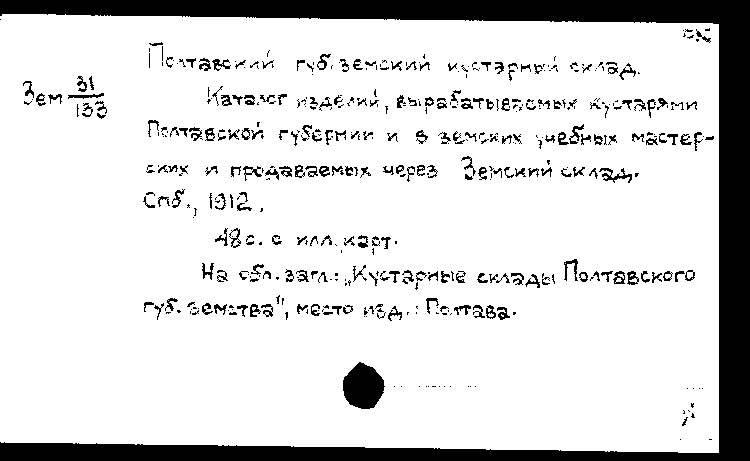 Полтавский губ. земский кустарный склад.
Зем 31/133
Каталог изделий, вырабатываемых кустарями
Полтавской губернии и в земских учебных мастер-
ских и продаваемых через Земский склад.
Спб., 1912.
48 с. с илл., карт.
На обл. загл.: „Кустарные склады Полтавского
губ. земства", место изд.: Полтава.